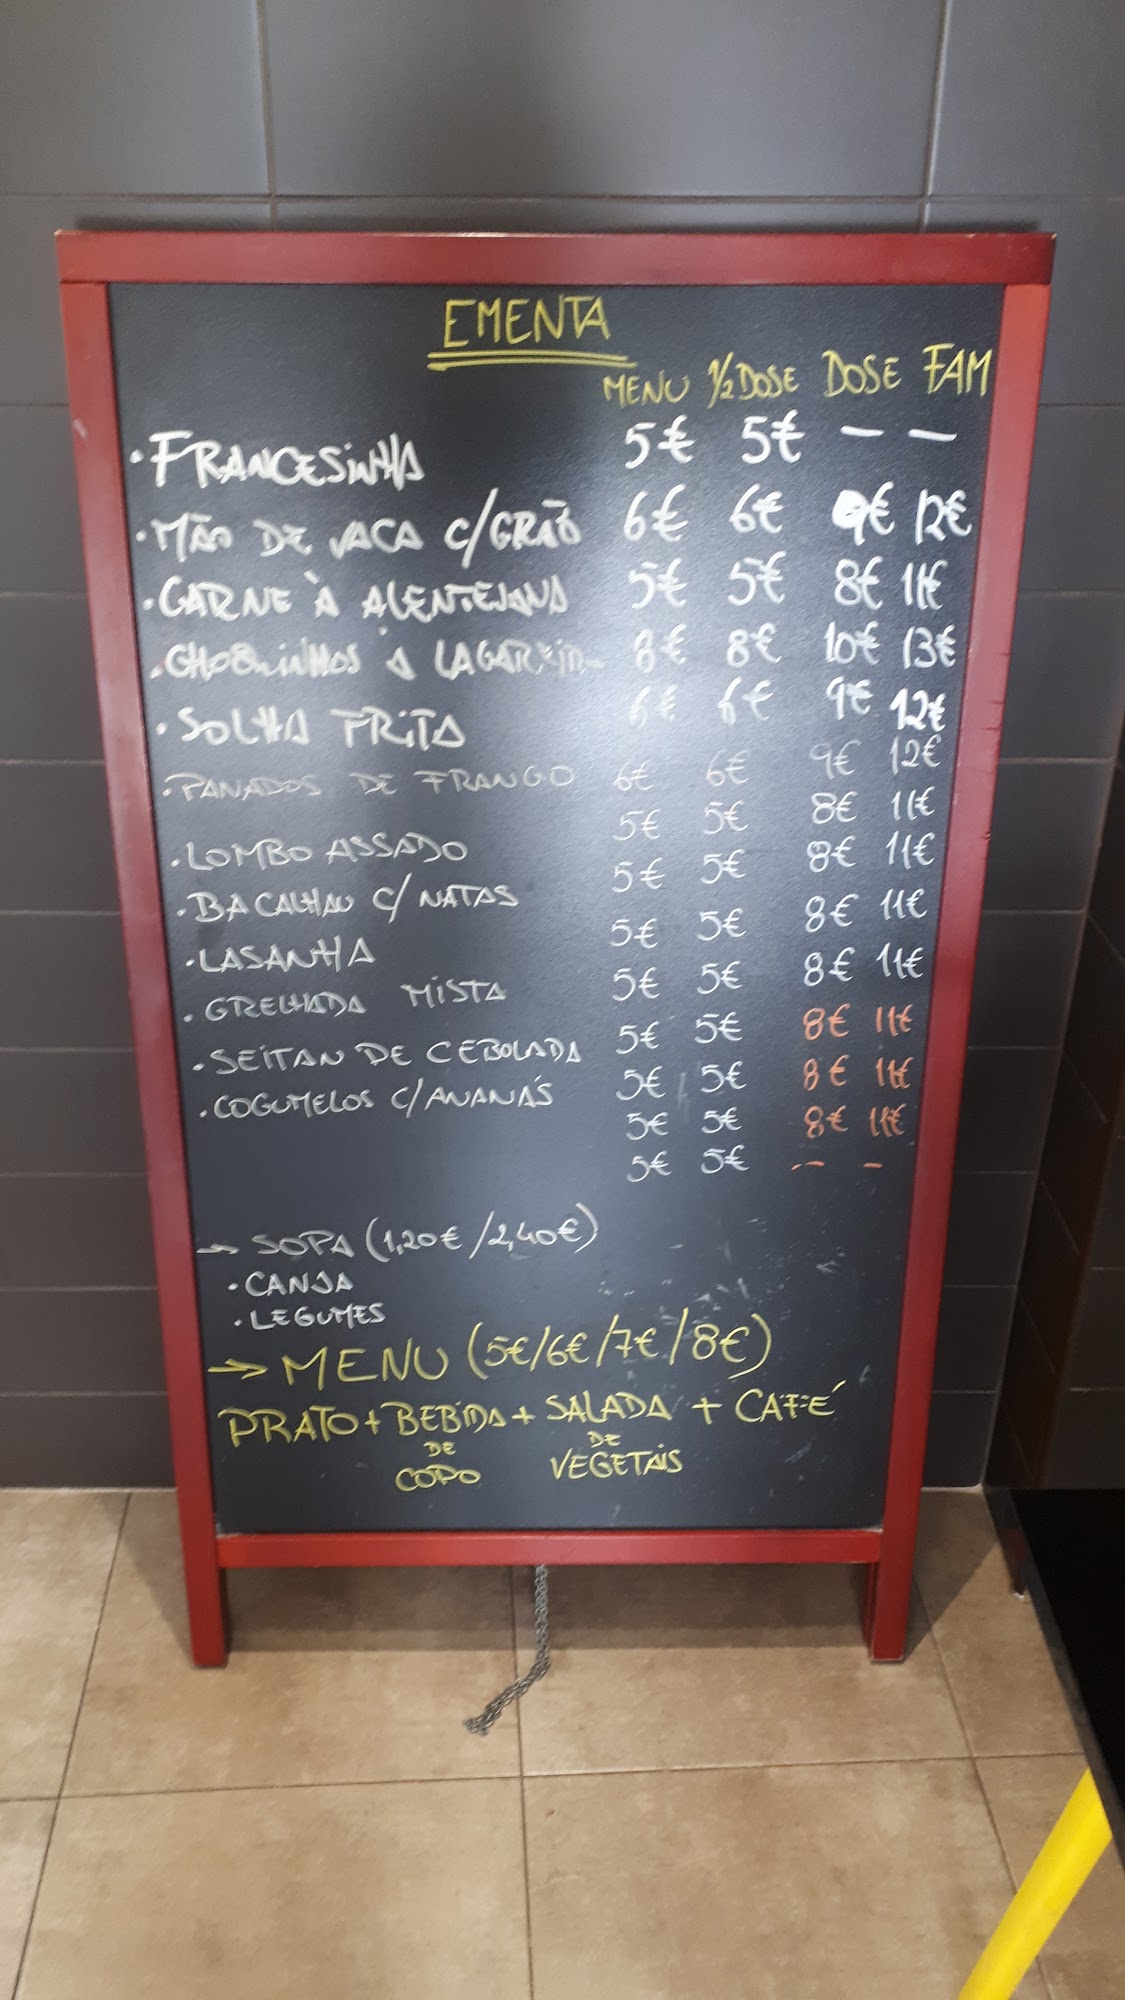 EMENTA
MENU 1/2 DOSE DOSE FAM
· FRANCESINHA 5€ 5€ — —
· MÃO DE VACA C/GRÃO 6€ 6€ 9€ 12€
· CARNE À ALENTEJANA 5€ 5€ 8€ 11€
· CHOQUINHOS À LAGAREIRO 8€ 8€ 10€ 13€
· SOLHA FRITA 6€ 6€ 9€ 12€
· PANADOS DE FRANGO 6€ 6€ 9€ 12€
· LOMBO ASSADO 5€ 5€ 8€ 11€
· BACALHAU C/ NATAS 5€ 5€ 8€ 11€
· LASANHA 5€ 5€ 8€ 11€
· GRELHADA MISTA 5€ 5€ 8€ 11€
· SEITAN DE CEBOLADA 5€ 5€ 8€ 11€
· COGUMELOS C/ANANÁS 5€ 5€ 8€ 11€
5€ 5€ 8€ 11€
5€ 5€ -- -
→ SOPA (1,20€/2,40€)
· CANJA
· LEGUMES
→ MENU (5€/6€/7€/8€)
PRATO + BEBIDA + SALADA + CAFÉ
DE DE
COPO VEGETAIS